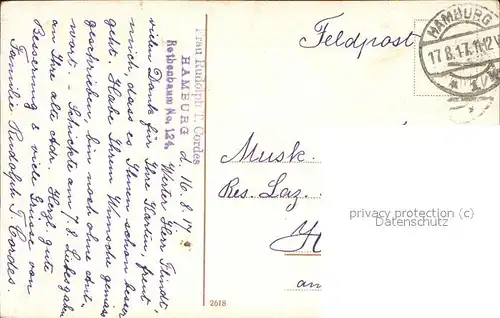 Feldpost
HAMBURG
17.8.17.11-12V
* 1 *
Frau Rudolph T. Cordes
HAMBURG
Rothenbaum No. 124.
d. 16.8.17.
Werter Herr Flindt
vielen Dank für Ihre Karten, freut
mich, dass es Ihnen schon besser
geht. Habe Ihrem Wunsche gemäss
geschrieben, bin noch ohne Ant-
wort. - Schickte am 7.8. Liebesgaben
an Ihre alte Adr. Herzl. gute
Besserung & viele Grüsse von
Familie Rudolph T. Cordes.
Musk.
Res. Laz.
H
an
privacy protection copyright
Datenschutz
2618